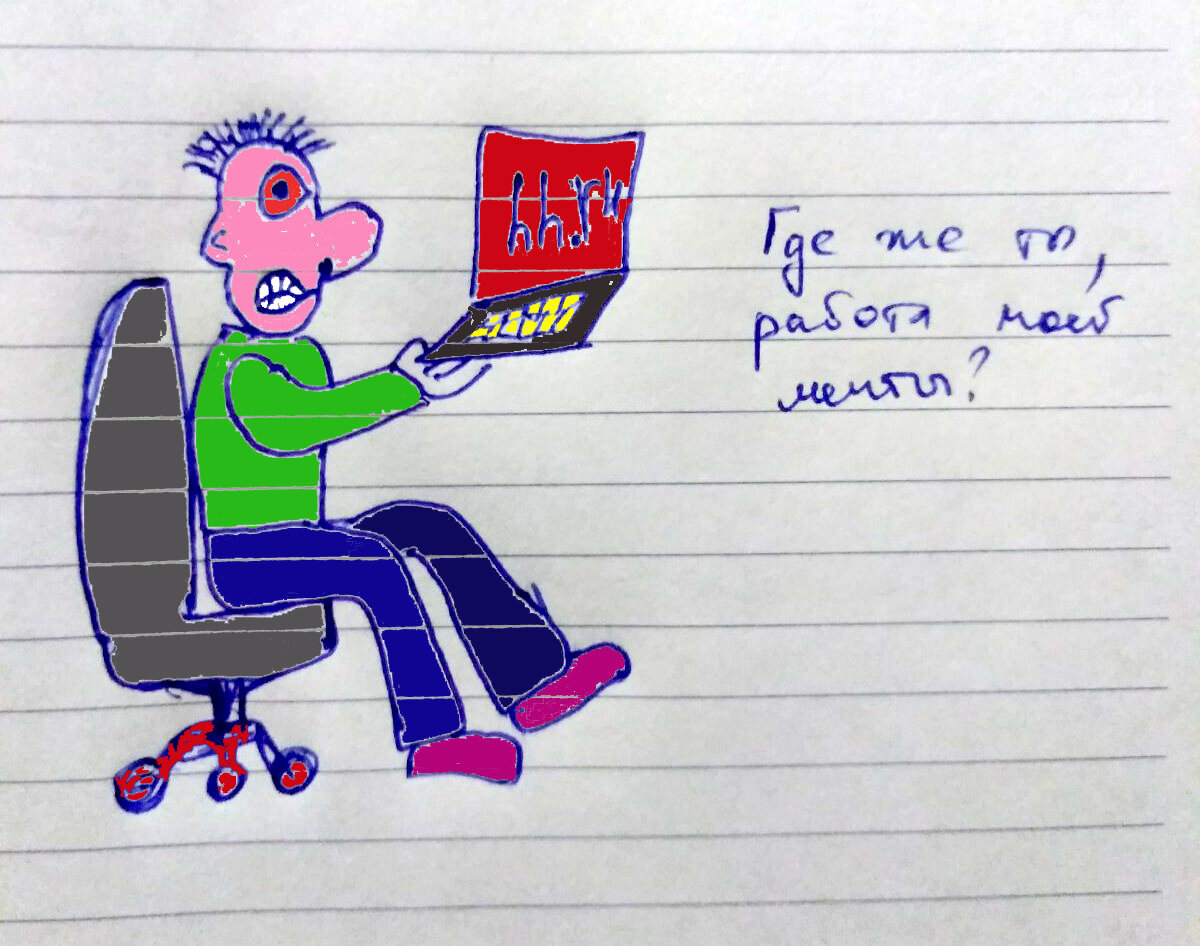 hh.ru
Где же ты,
работа моей
мечты?